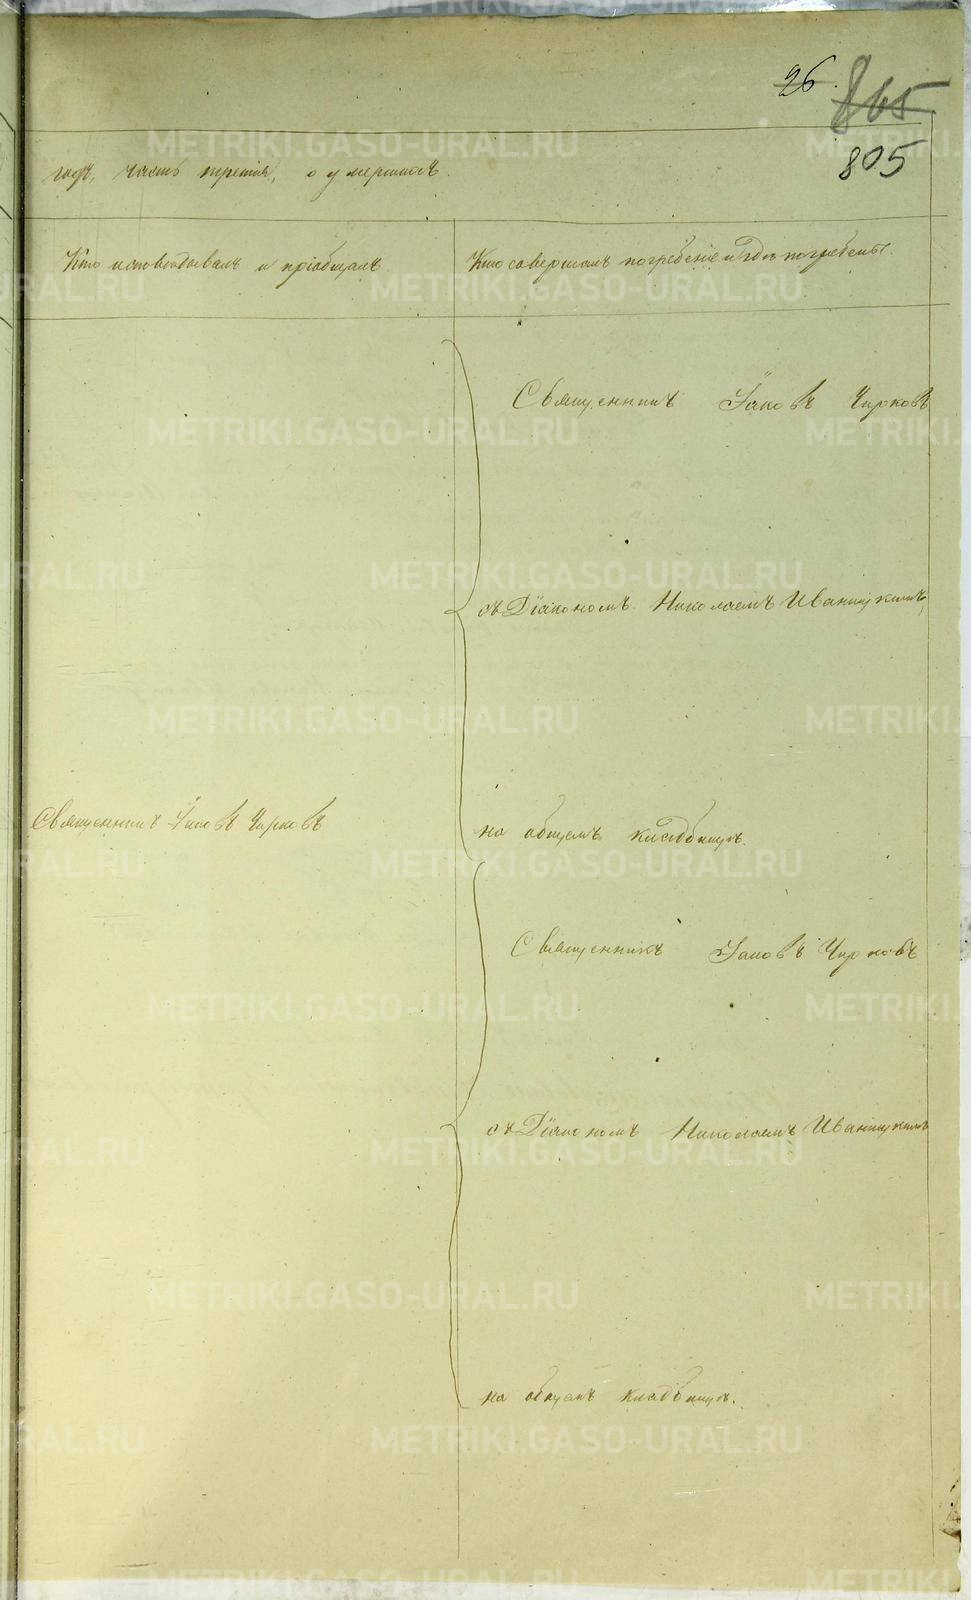 26.
865
805
годъ, часть третія, о умершихъ.
Кто исповѣдывалъ и пріобщалъ
Кто совершалъ погребеніе и гдѣ погребены.
Священникъ Іаковъ Чирковъ
съ Діакономъ Николаемъ Иваницкимъ,
Священникъ Іаковъ Чирковъ
на общемъ кладбищѣ.
Священникъ Іаковъ Чирковъ
съ Діакономъ Николаемъ Иваницкимъ
на общемъ кладбищѣ.
METRIKI.GASO-URAL.RU